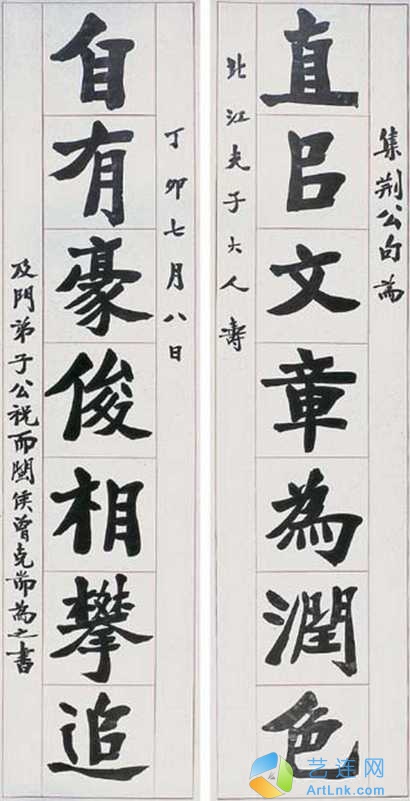 集荆公句為
直㠯文章為潤色
北江夫子大人壽
丁卯七月八日
自有豪俊相攀追
及門弟子公祝而閩侯曾克耑為之書
艺连网
ArtLnk.com